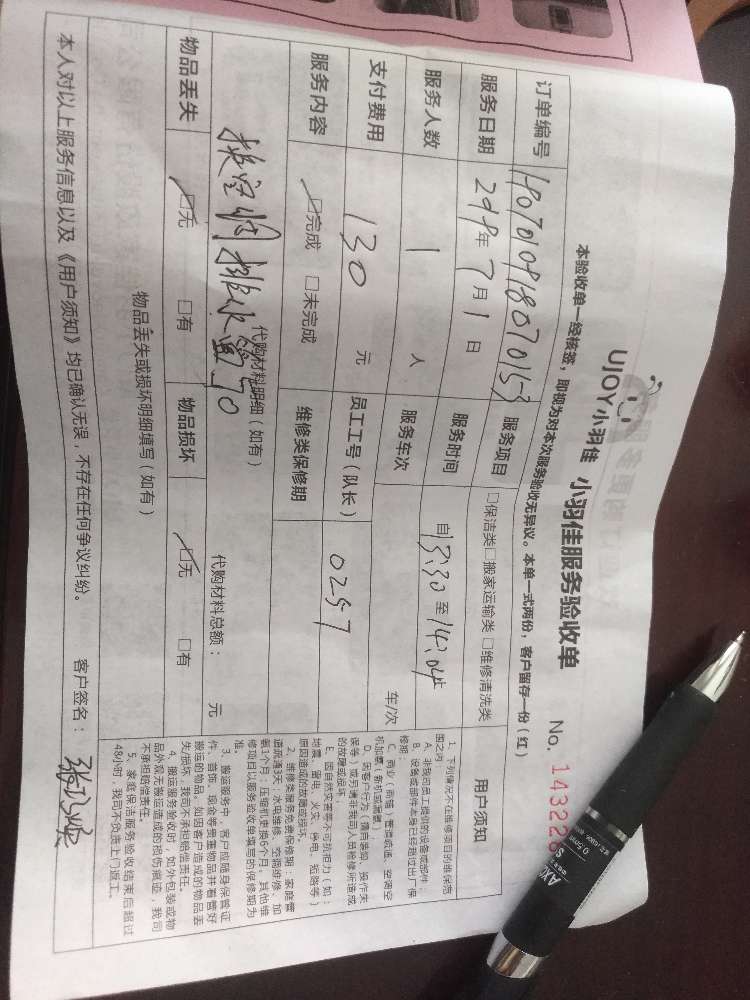 UJOY小羽佳 小羽佳服务验收单
No. 143228
本验收单一经核签，即视为对本次服务验收无异议。本单一式两份，客户留存一份(红)
订单编号 180701091807015-3 服务项目 □保洁类□搬家运输类□维修清洗类
服务日期 2018年7月1日 服务时间 自13:30至14:04
服务人数 1 人 服务车次 车/次
支付费用 130 元 员工工号(队长) 0257
服务内容 ☑完成 □未完成 维修类保修期
代购材料明细(如有) 代购材料总额: 元
排水 70
物品丢失 ☑无 □有 物品损坏 ☑无 □有
物品丢失或损坏明细填写(如有)
本人对以上服务信息以及《用户须知》均已确认无误，不存在任何争议纠纷。 客户签名:
用户须知
1、下列情况不在维修项目的维保范
围之内
A、非我司员工提供的设备或部件;
B、设备或部件本身已经超过出厂保
修期;
C、商业/商铺/管道疏通，空调空
机加氟/新机或
D、因客户行为(
保等)或另请非我司人员检修所造成
的故障或损坏;
E、因自然灾害等不可抗拒力(如:
地震、雷电、火灾、停电、短路等)
原因造成的故障或损坏。
2、维修类服务免费保修期:家庭管
道疏通3天;水电维修、空调维修、加
氨1个月;压缩机更换6个月。其他维
修项目以服务验收单填写的保修期为
准。
3、搬运服务中，客户应随身保管证
件、首饰、现金等贵重物品并看管好
搬运的物品，如因客户造成的物品丢
失/损坏，我司不承担赔偿责任。
4、搬运服务验收时，如外包装或物
品外观无搬运造成的损伤痕迹，我司
不承担赔偿责任。
5、家庭保洁服务验收结束后超过
48小时，我司不负责上门返工。